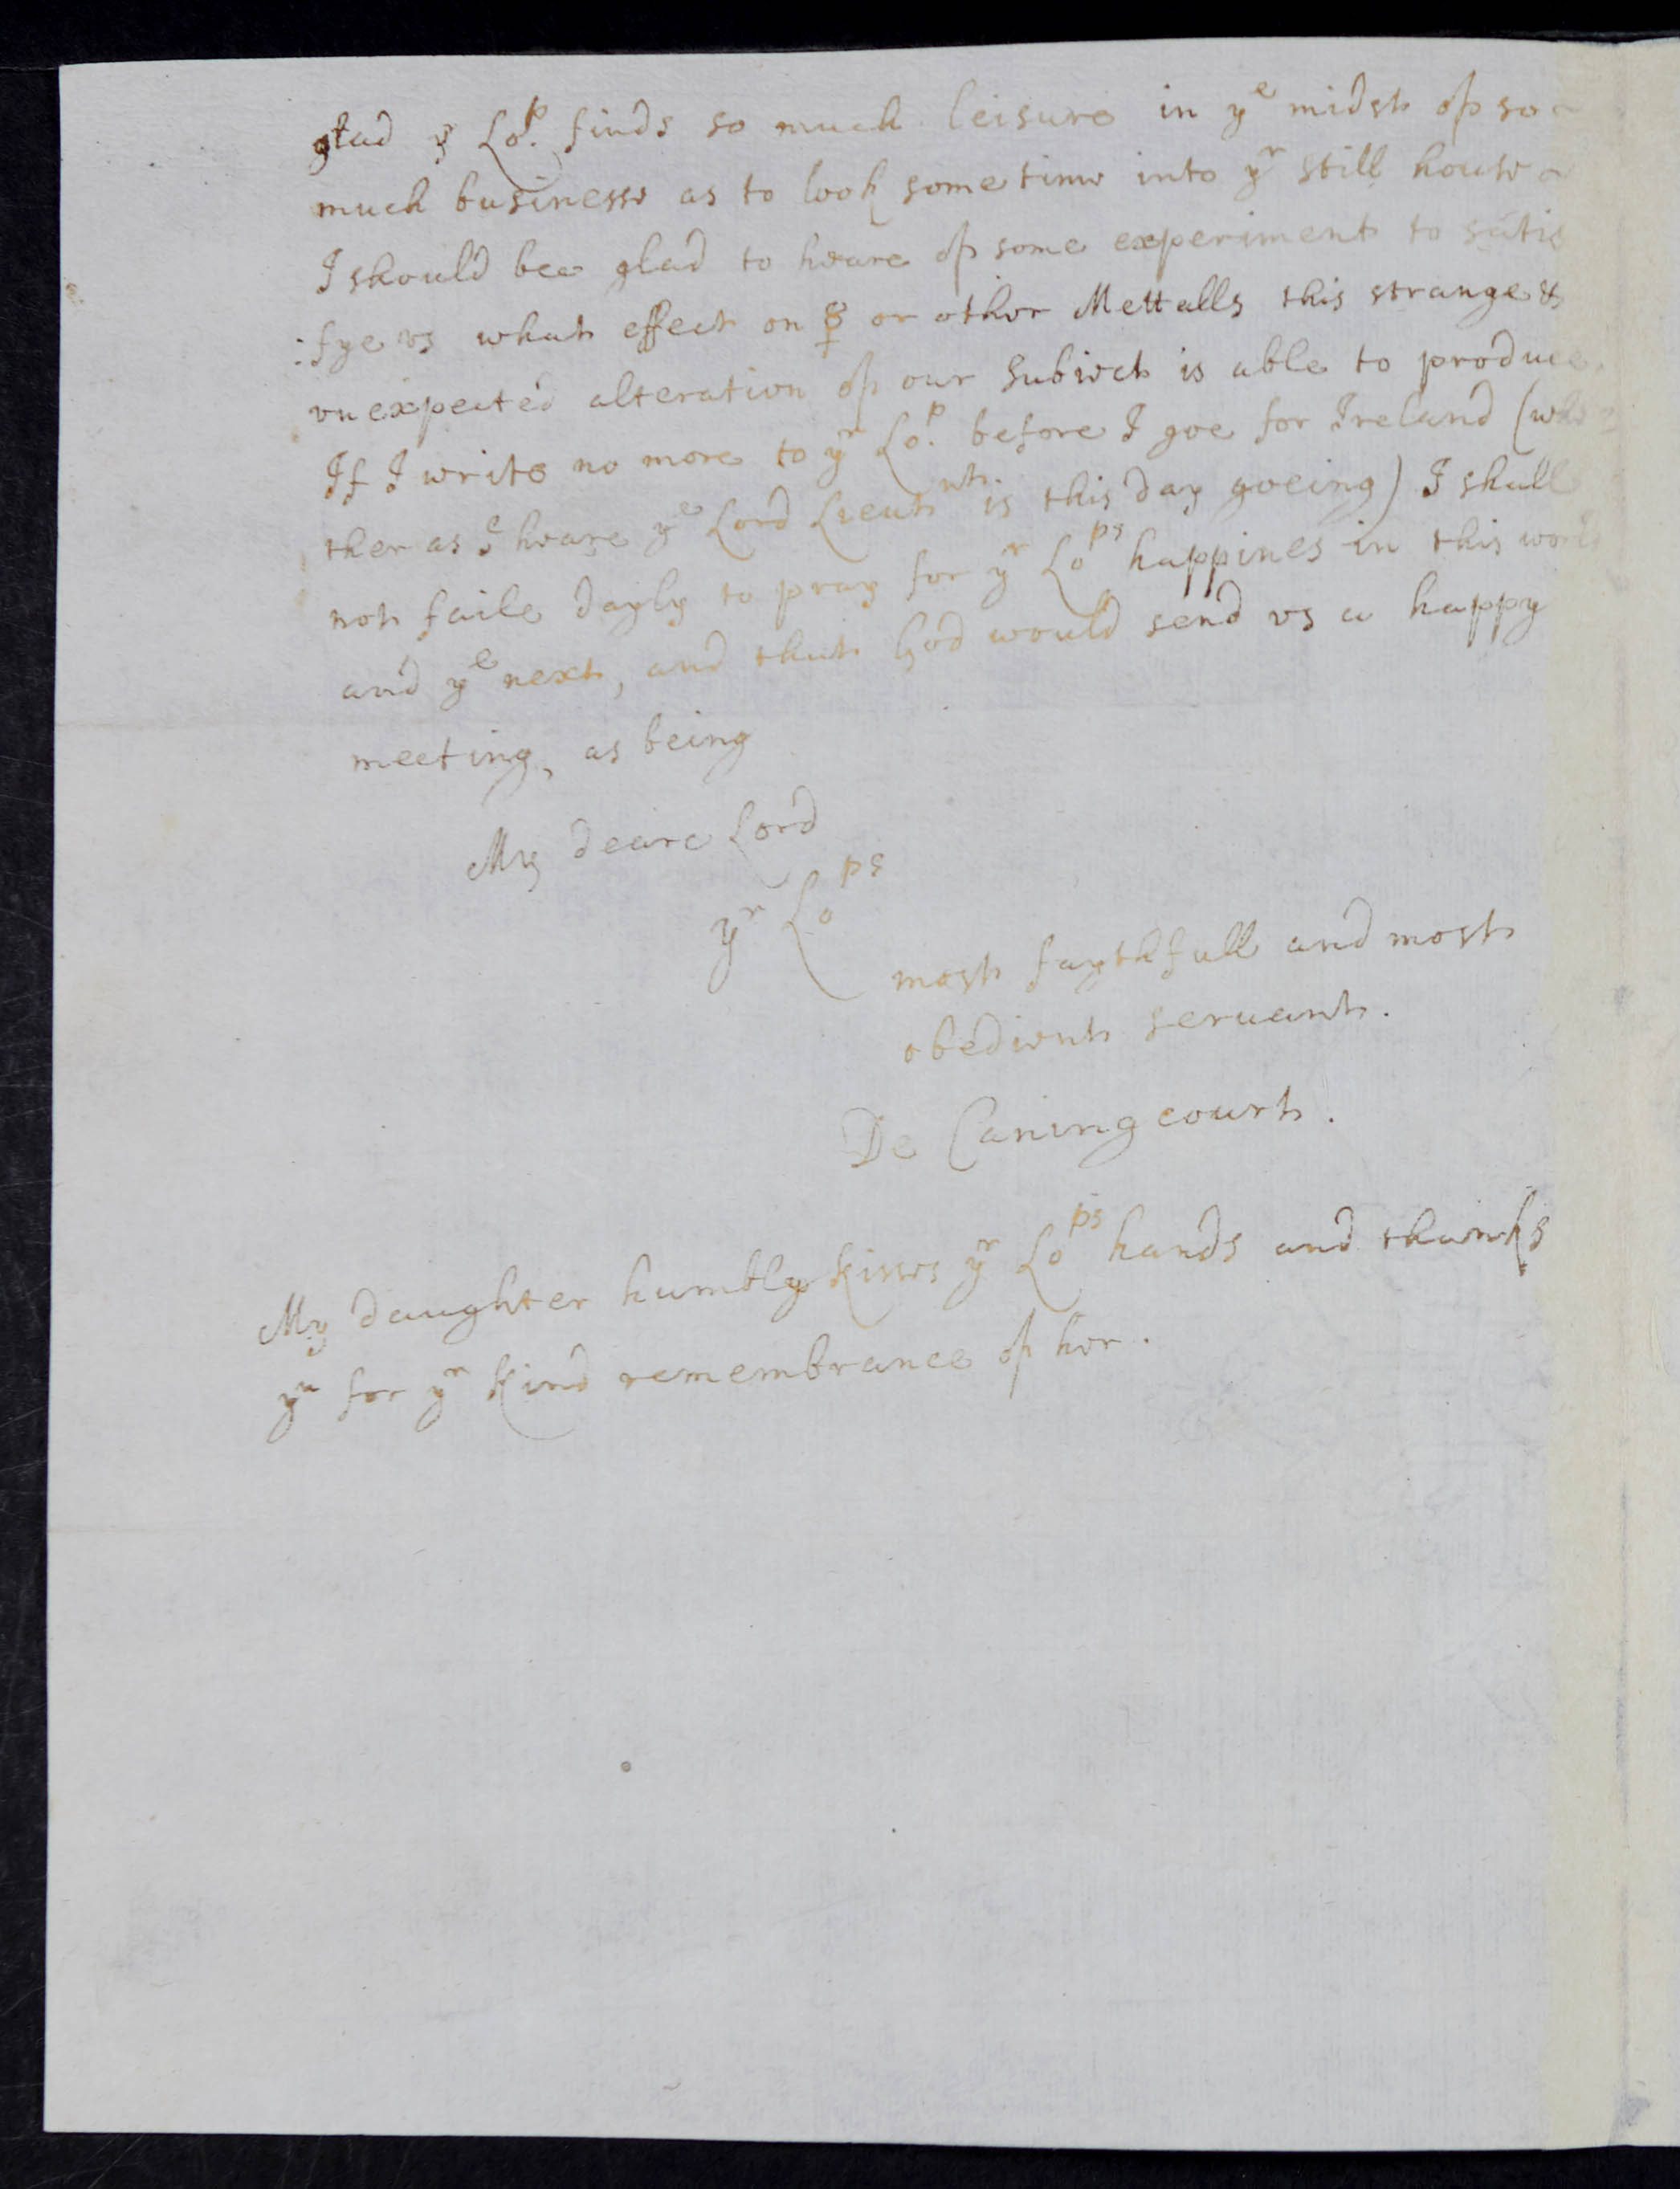 glad yr Lo.p finds so much leisure in ye midst of so
much businesse as to look sometime into yr still house
I should bee glad to heare of some experiment to satis
:fye vs what effect on ☿ or other Mettalls this strange &
vnexpected alteration of our Subiect is able to produce.
If I write no more to yr Lo.p before I goe for Ireland (whi
ther as I heare ye Lord Lieutnt. is this day goeing) I shall
not faile dayly to pray for yr Lops happines in this world
and ye next, and that God would send vs a happy
meeting, as being
My deare Lord
yr Lops
most faythfull and most
obedient seruant.
De Caningcourt.
My daughter humbly kisses yr Lops hands and thanks
yu for yr kind remembrance of her.